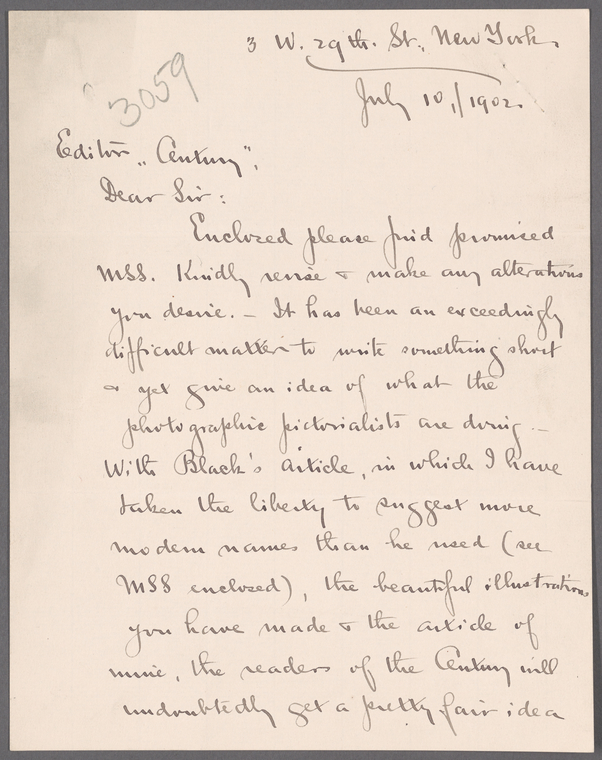 3 W. 29th. St., New York.
3059
July 10,/1902.
Editor „Century",
Dear Sir:
Enclosed please find promised
MSS. Kindly revise & make any alterations
you desire. — It has been an exceedingly
difficult matter to write something short
& yet give an idea of what the
photographic pictorialists are doing. —
With Black's article, in which I have
taken the liberty to suggest more
modern names than he used (see
MSS enclosed), the beautiful illustrations
you have made & the article of
mine, the readers of the Century will
undoubtedly get a pretty fair idea